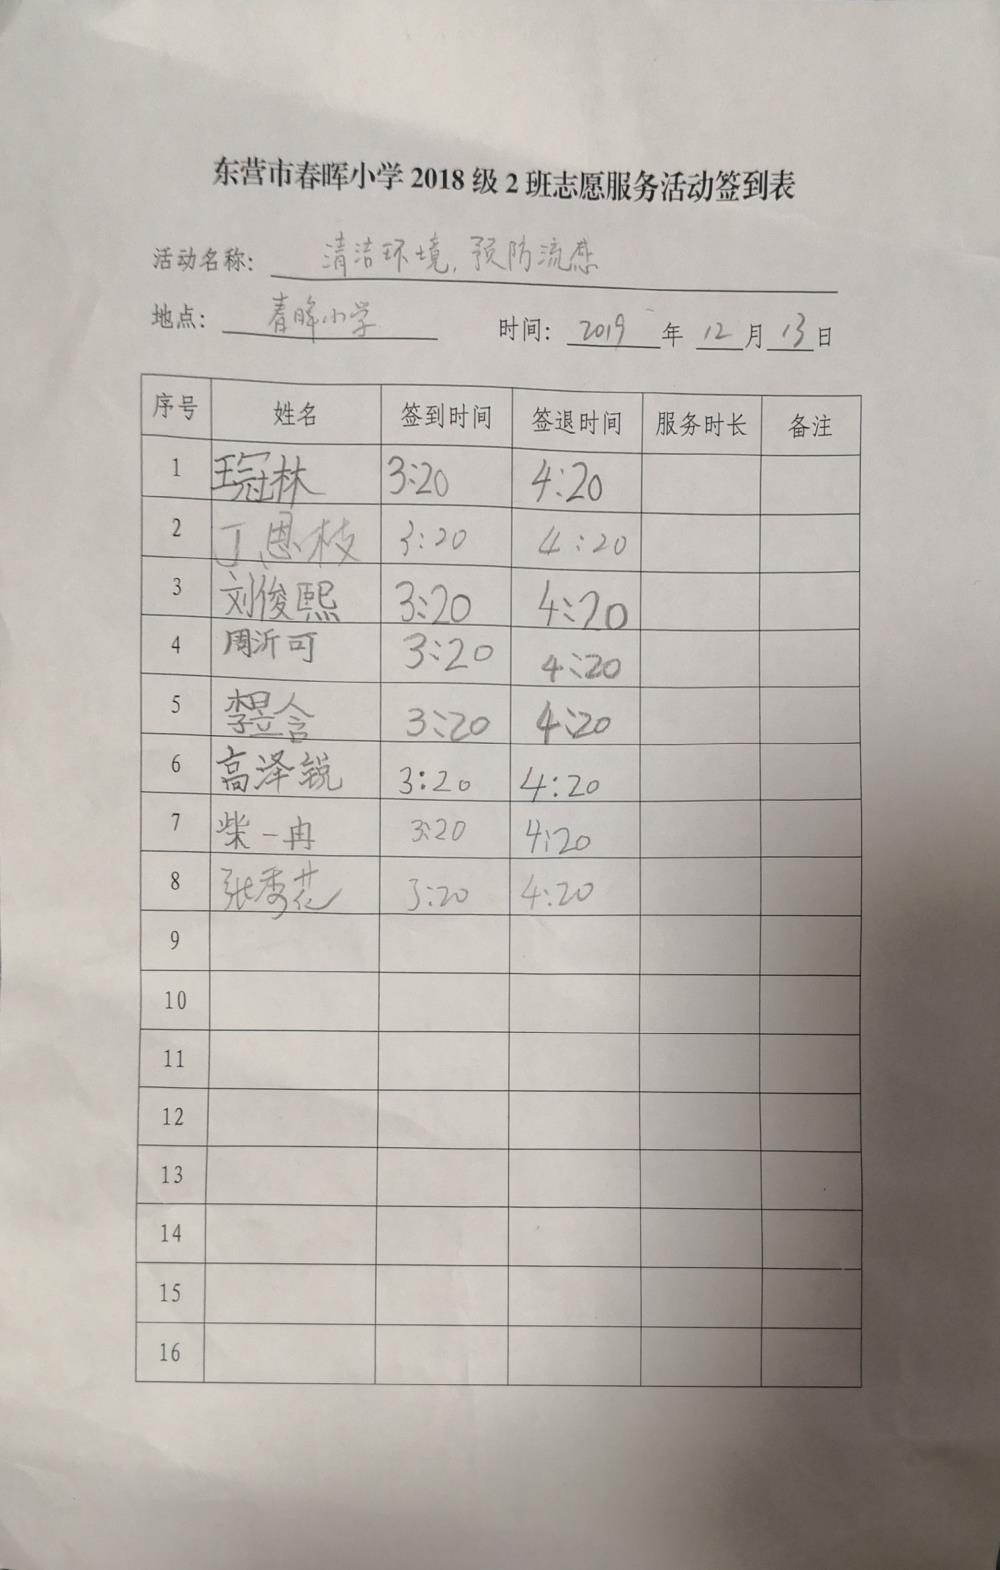 东营市春晖小学 2018 级 2 班志愿服务活动签到表
活动名称: 清洁环境,预防流感
地点: 春晖小学 时间: 2019 年 12 月 13 日
序号 姓名 签到时间 签退时间 服务时长 备注
1 王冠林 3:20 4:20
2 丁恩枝 3:20 4:20
3 刘俊熙 3:20 4:20
4 周沂可 3:20 4:20
5 李昱含 3:20 4:20
6 高泽锐 3:20 4:20
7 柴一冉 3:20 4:20
8 张秀花 3:20 4:20
9
10
11
12
13
14
15
16